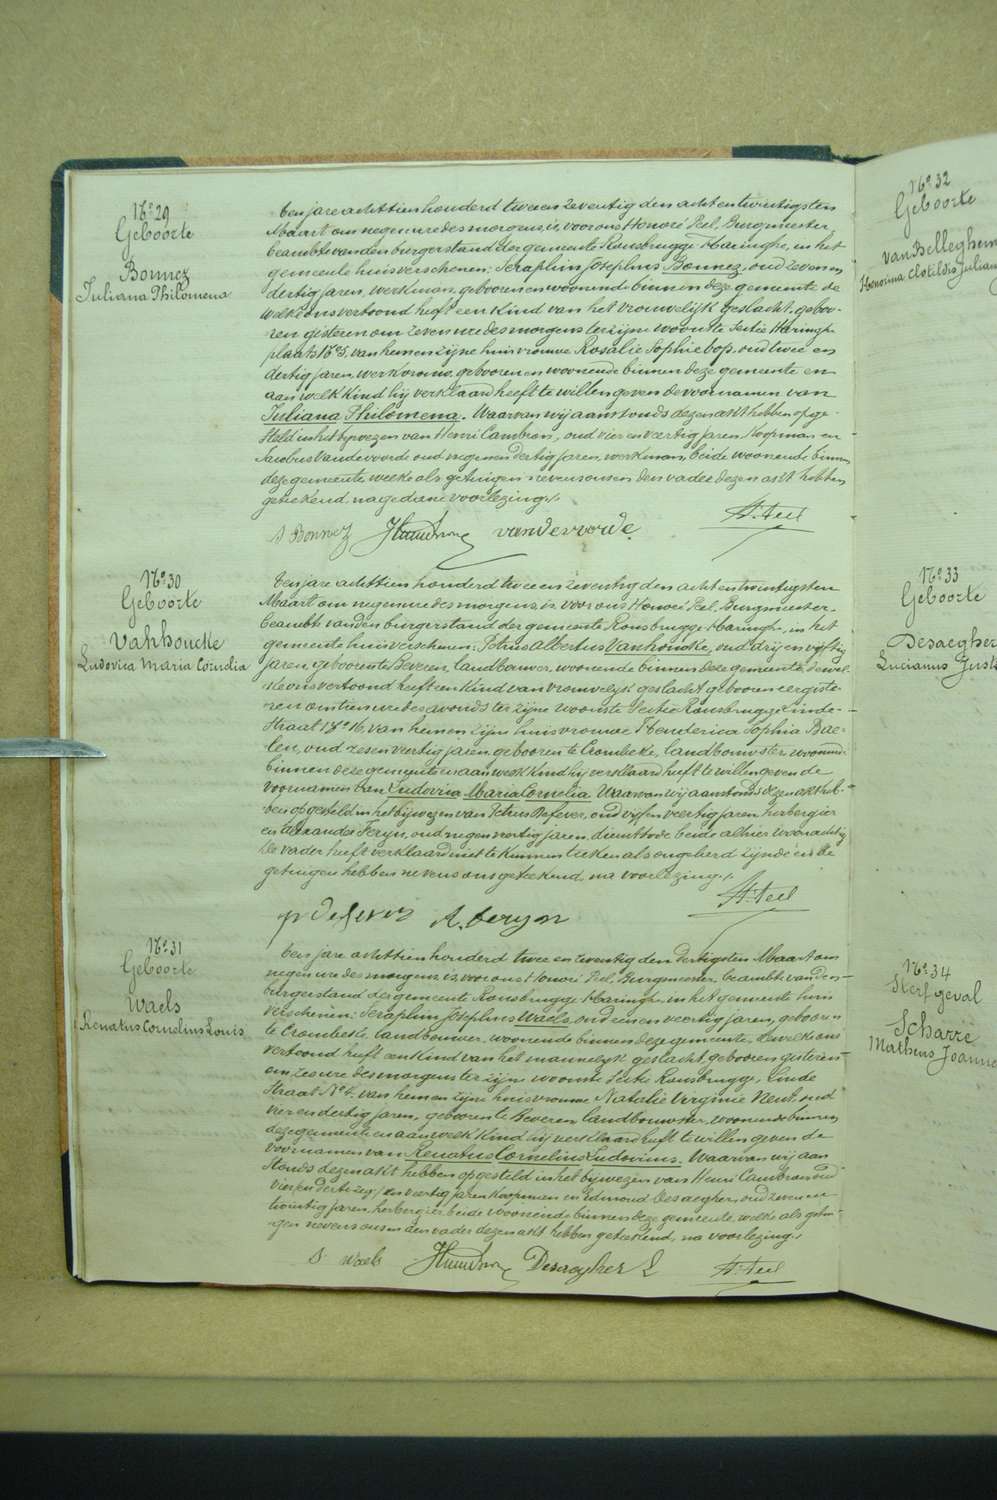 No 29
Geboorte
Bonnez
Juliana Philomena
Ten jare achttien honderd twee en zeventig den acht en twintigsten
Maart om negen ure des morgens, is voor ons Honoré Peel, Burgmeester,
beambte van den burgerstand der gemeente Rousbrugge Haringhe, in het
gemeente huis verschenen: Seraphin Josephus Bonnez, oud zeven en
dertig jaren, werkman, geboren en woonende binnen deze gemeente de
welke ons vertoond heeft een kind van het vrouwelijk geslacht, geboo-
ren gisteren om zeven ure des morgens ter zijne woonste Sectie Haringhe
plaats No 5, van hem en zijne huisvrouwe Rosalie Sophie Top, oud twee en
dertig jaren, werkvrouw, gebooren en woonende binnen deze gemeente en
aan welk kind hij verklaard heeft te willen geven de voornamen van
Juliana Philomena. Waarvan wij aanstonds dezen akt hebben opge-
steld in het bijwezen van Henri Cambron, oud vier en veertig jaren, koopman en
Jacobus Vandevoorde oud negen en dertig jaren, werkman, beide woonende binnen
deze gemeente, welke als getuigen nevens ons en den vader dezen akt hebben
geteekend, na gedane voorlezing./.
S Bonnez HCambron vandevoorde H. Peel
No 30
Geboorte
Vanhoucke
Ludovica Maria Cornelia
Ten jare achttien honderd twee en zeventig den acht en twintigsten
Maart om negen ure des morgens, is voor ons Honoré Peel, Burgmeester,
beambte van den burgerstand der gemeente Rousbrugge Haringhe, in het
gemeente huis verschenen: Petrus Albertus Vanhoucke, oud drij en vijftig
jaren, geboren te Beveren, landbouwer, woonende binnen deze gemeente, dewel-
ke ons vertoond heeft een kind van vrouwelijk geslacht, gebooren eergiste-
ren om tien ure des avonds ter zijne woonste Sectie Rousbrugge einde-
straat No 16, van hem en zijne huisvrouwe Henderica Sophia Bae-
len, oud zes en veertig jaren, gebooren te Crombeke, landbouwster, woonende
binnen deze gemeente en aan welk kind hij verklaard heeft te willen geven de
voornamen van Ludovica Maria Cornelia. Waarvan wij aanstonds dezen akt heb-
ben opgesteld in het bijwezen van Petrus Defever, oud vijf en veertig jaren, herbergier
en Alexander Seryn, oud negen en veertig jaren, dienstbode beide alhier woonachtig.
De vader heeft verklaard niet te kunnen teeken als ongeleerd zijnde en de
getuigen hebben nevens ons geteekend, na voorlezing./.
H. Peel
p defever A. seryn
No 31
Geboorte
Waels
Renatus Cornelius Louis
Ten jare achttien honderd twee en zeventig den dertigsten Maart om
negen ure des morgens, is voor ons Honoré Peel, Burgmeester beambte van den
burgerstand der gemeente Rousbrugge Haringhe, in het gemeente huis
verschenen: Seraphin Josephus Waels, oud een en veertig jaren, gebooren
te Crombeke, landbouwer, woonende binnen deze gemeente, dewelke ons
vertoond heeft een kind van het mannelijk geslacht, gebooren gisteren
om zes ure des morgens ter zijne woonste Sectie Rousbrugge, Einde
Straat No 4, van hem en zijne huisvrouwe Natalie Virginie Neut, oud
vier en dertig jaren, gebooren te Beveren landbouwster, woonende binnen
deze gemeente en aan welk kind hij verklaard heeft te willen geven de
voornamen van Renatus Cornelius Ludovicus. Waarvan wij aan
stonds dezen akt hebben opgesteld in het bijwezen van Henri Cambron oud
vier en veertig jaren koopman en Edmond Desaegher, oud zeven en
twintig jaren, herbergier beide woonende binnen deze gemeente, welke als getui-
gen nevens ons en den vader dezen akt hebben geteekend, na voorlezing./.
S. Waels HCambron Desaegher E H. Peel
No 32
Geboorte
van Belleghem
Honorina Clotildis Julian
No 33
Geboorte
Desaegher
Lucianus Just
No 34
Sterfgeval
Scharre
Matheus Joanne